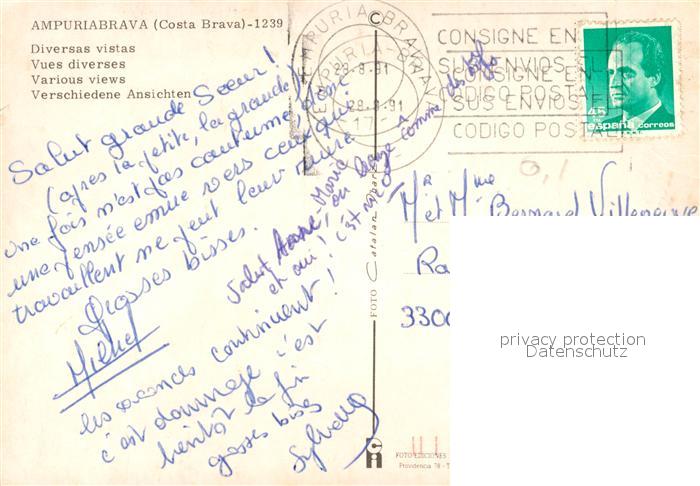 AMPURIABRAVA (Costa Brava)-1239
Diversas vistas
Vues diverses
Various views
Verschiedene Ansichten
AMPURIABRAVA
28-8-91
28-8-91
17
CONSIGNE EN
SUS ENVIOS EL
CODIGO POSTAL
CONSIGNE EN
SUS ENVIOS EL
CODIGO POSTAL
45
españa correos
Salut grande Soeur !
(après la petite, la grande)
Une fois n'est pas coutume,
une pensée émue vers ceux que
travaillent ne peut leur nuire
Grosses bisses.
Michel
Salut Anne, Marie
et oui ! on bronze comme des
c'est
les vacances continuent !
c'est dommage c'est
bientôt la fin
grosses bises
Sylvette
FOTO Catalan
Mr et Mme Bernard Villeneuve
330
privacy protection
Datenschutz
FOTO EDICIONES
Providencia 78 - T